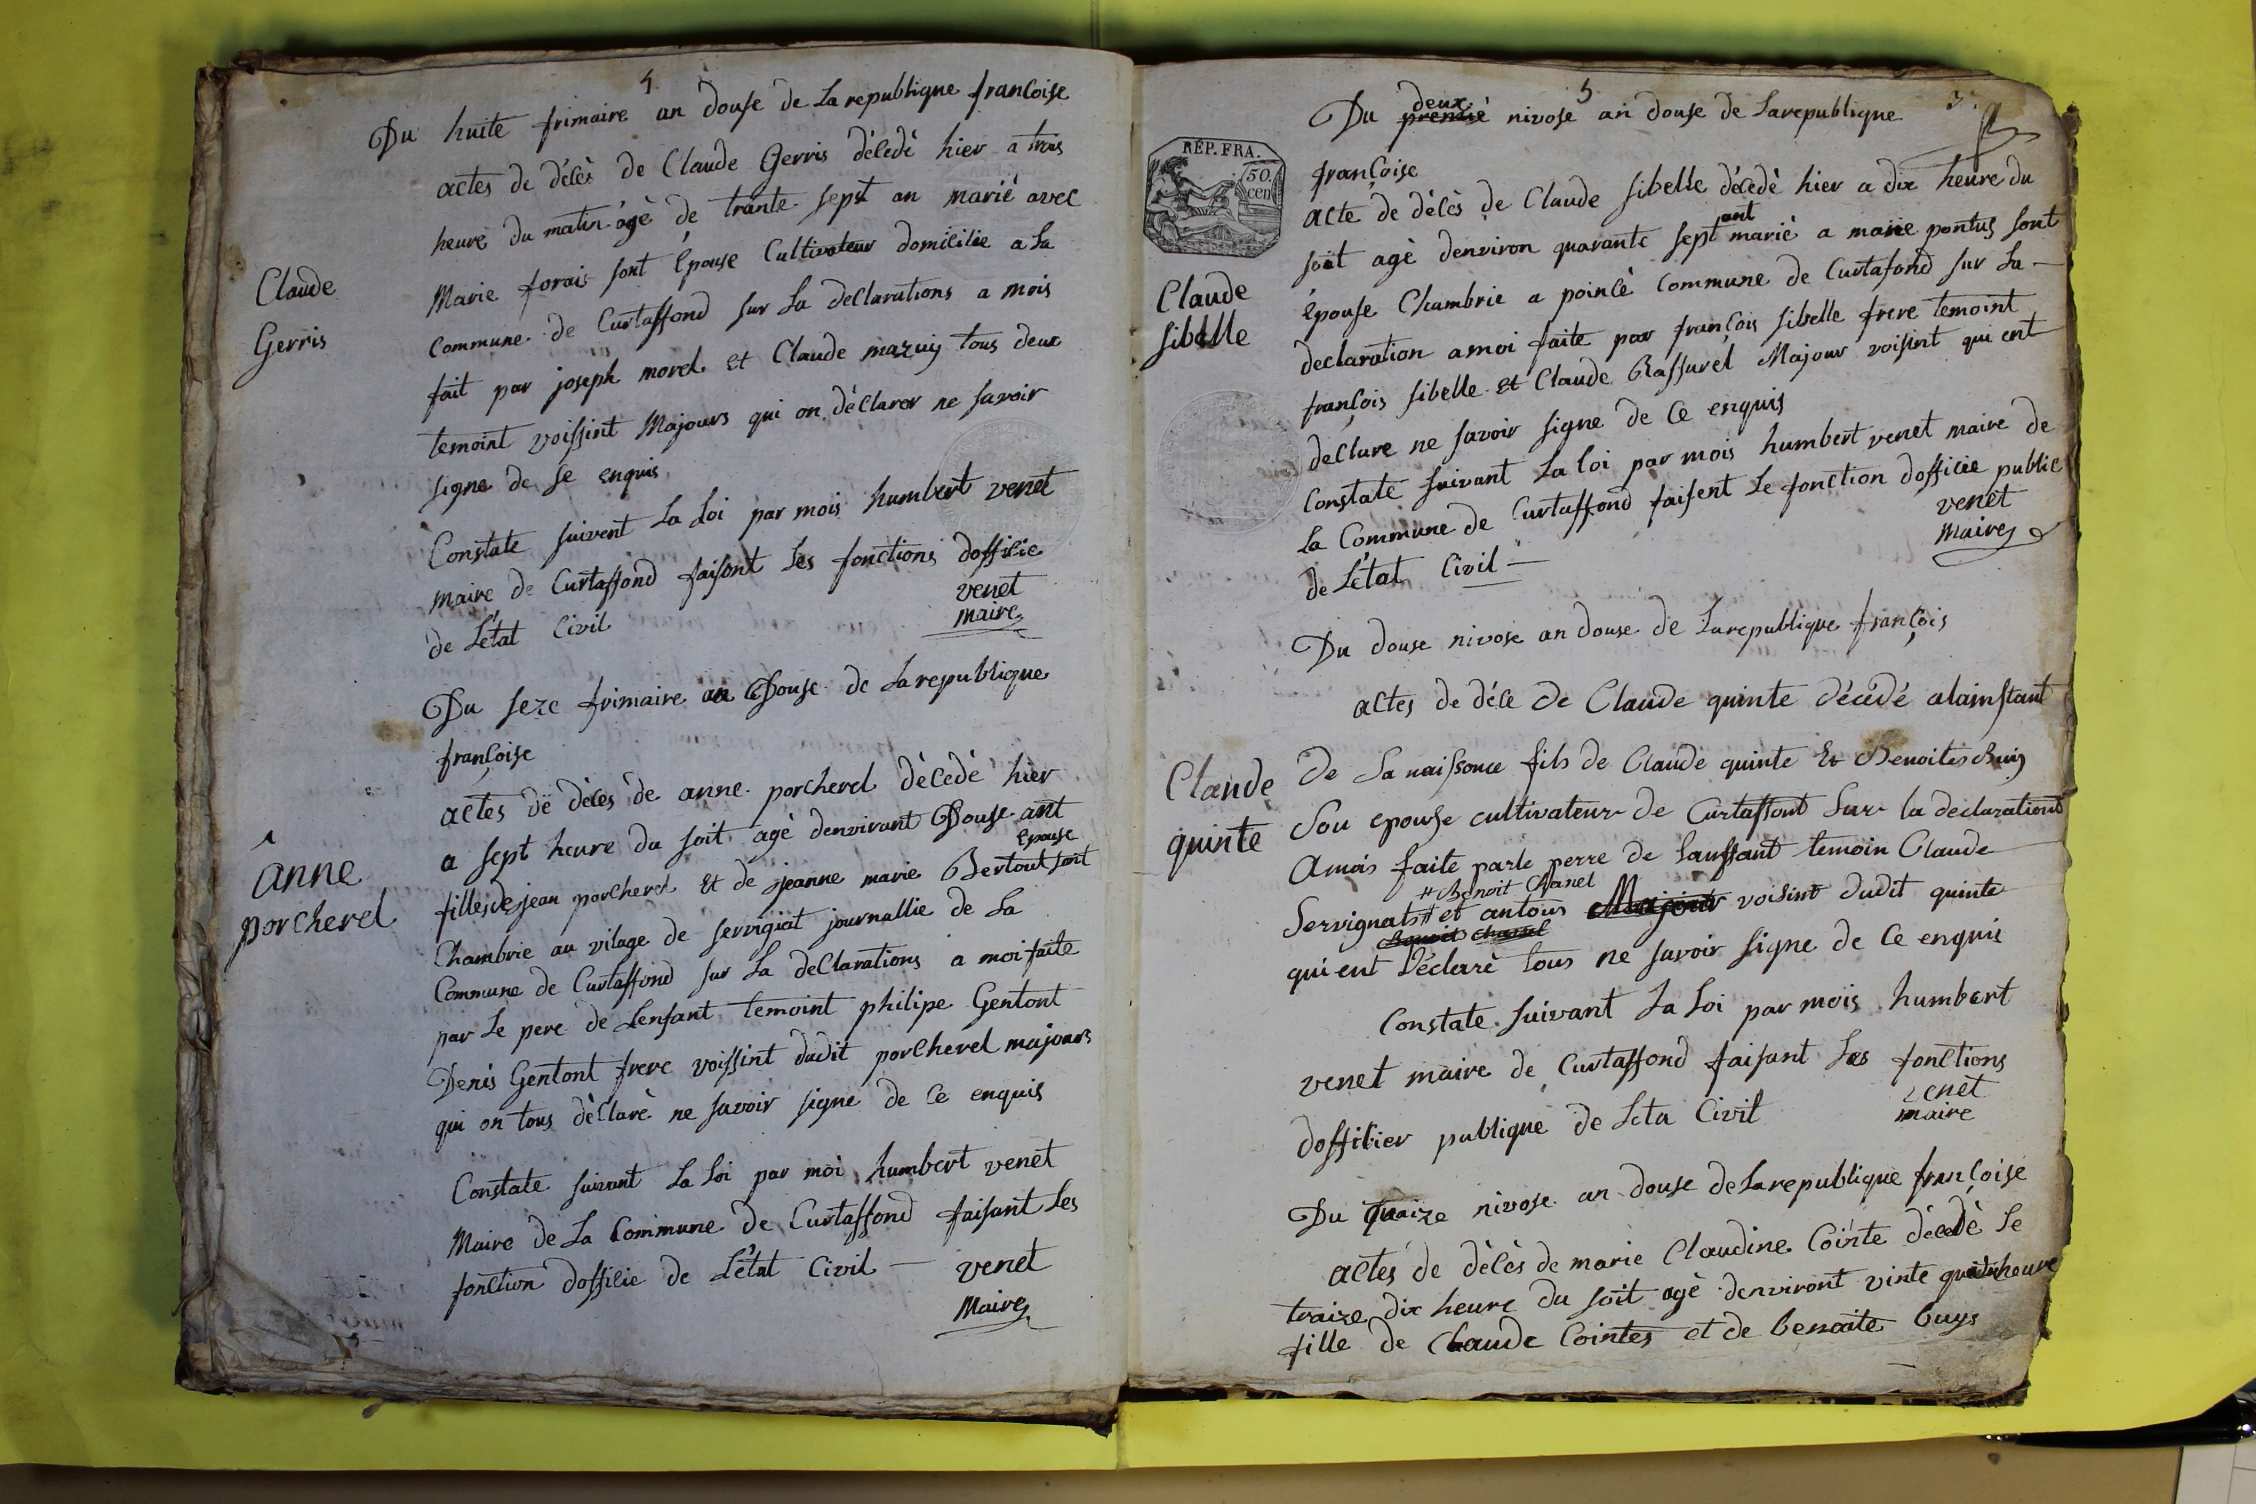 4
Du huite frimaire an douse de La republique francoise
actes de délès de Claude Gerris décledé hier a trois
heure du matin ôgè de trante sept an mariè avec
Marie forais sont Épouse Cultivateur domicilie a La
Claude
Gerris
commune de Curtaffond sur La declarations a mois
fait par joseph morel et Claude mazuij tous deux
temoint voissint Majours qui on déclarer ne savoir
signe de se enquis
Constate suivent La Loi par mois humbert venet
maire de Curtaffond faisont Les fonctions dofficie
de Létat Civil
venet
maire
Du seze frimaire an Douse de La republique
françoise
actes de délès de anne porcherel décedè hier
a sept heure du soit agè denvirant Douse ant
anne
porcherel
filles de jean porcherel Et de jeanne marie Bertout sont
Epouse
Chambrie au vilage de servigiat journallie de La
Commune de Curtaffond sur La declarations a moi faite
par Le pere de Lenfant temoint philipe Gentont
Denis Gentont frere voissint dudit porcherel majours
qui on tous déclarè ne savoir signe de Ce enquis
Constate suivant La Loi par moi humbert venet
Maire de La Commune de Curtaffond faisant Les
fonction dofficie de Létat Civil
venet
Maire
5
3
Du premiè nivose an douse de La republique
deux
RÉP. FRA.
50
cen
françoise
acte de délès de Claude sibelle décedè hier a dix heure du
soit agè denviron quarante sept ant mariè a marie pontus sont
Claude
sibelle
Épouse Chambrie a poincè Commune de Curtafond sur La
declaration a moi faite par françois sibelle frere temoint
françois sibelle et Claude Rassurel Majour voisint qui ent
declare ne savoir signe de Ce enquis
Constate suivant La loi par mois humbert venet maire de
La Commune de Curtaffond faisent Le fonction dofficie public
de Létat Civil
venet
Maire
Du douse nivose an douse de La republique françois
actes de déle de Claude quinte décédé alainstant
Claude
quinte
De La naissonce fils de Claude quinte Et Benoites Buij
Sou epouse cultivateur de Curtaffont Sur la declarationt
Amois faite parle perre de Lanffant temoin Claude
# Benoit Chanel
Servignat # et antous Majour voisint dudit quinte
Benoit Chanel
qui ent Déclarè tous ne savoir signe de Ce enquis
Constate suivant La Loi par mois humbert
venet maire de Curtaffond faisant Les fonctions
doffitier publique de Leta Civil
venet
maire
Du traize nivose an douse de La republique françoise
actes de délès de marie Claudine Cointe décedè Le
traize dix heure du soit agè denviront vinte quatrheure
fille de Claude Cointes et de benoite buys